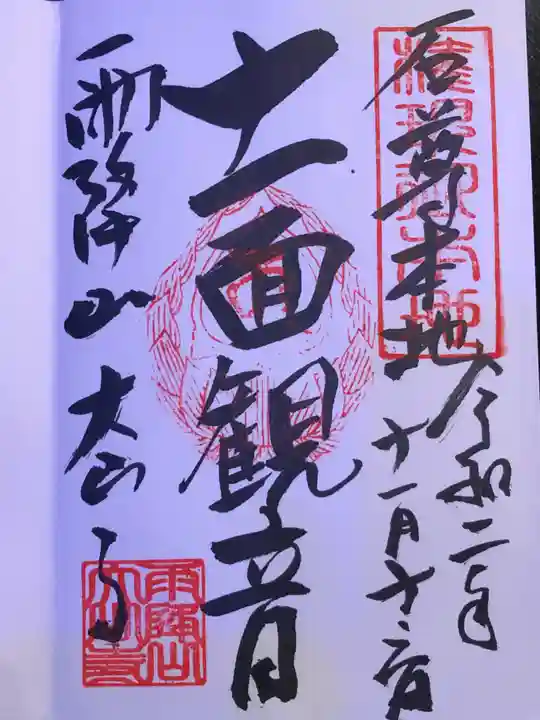 石尊本地
令和二年
十一月十二日
十一面観音
雨降山大山寺
雨降山
大山寺